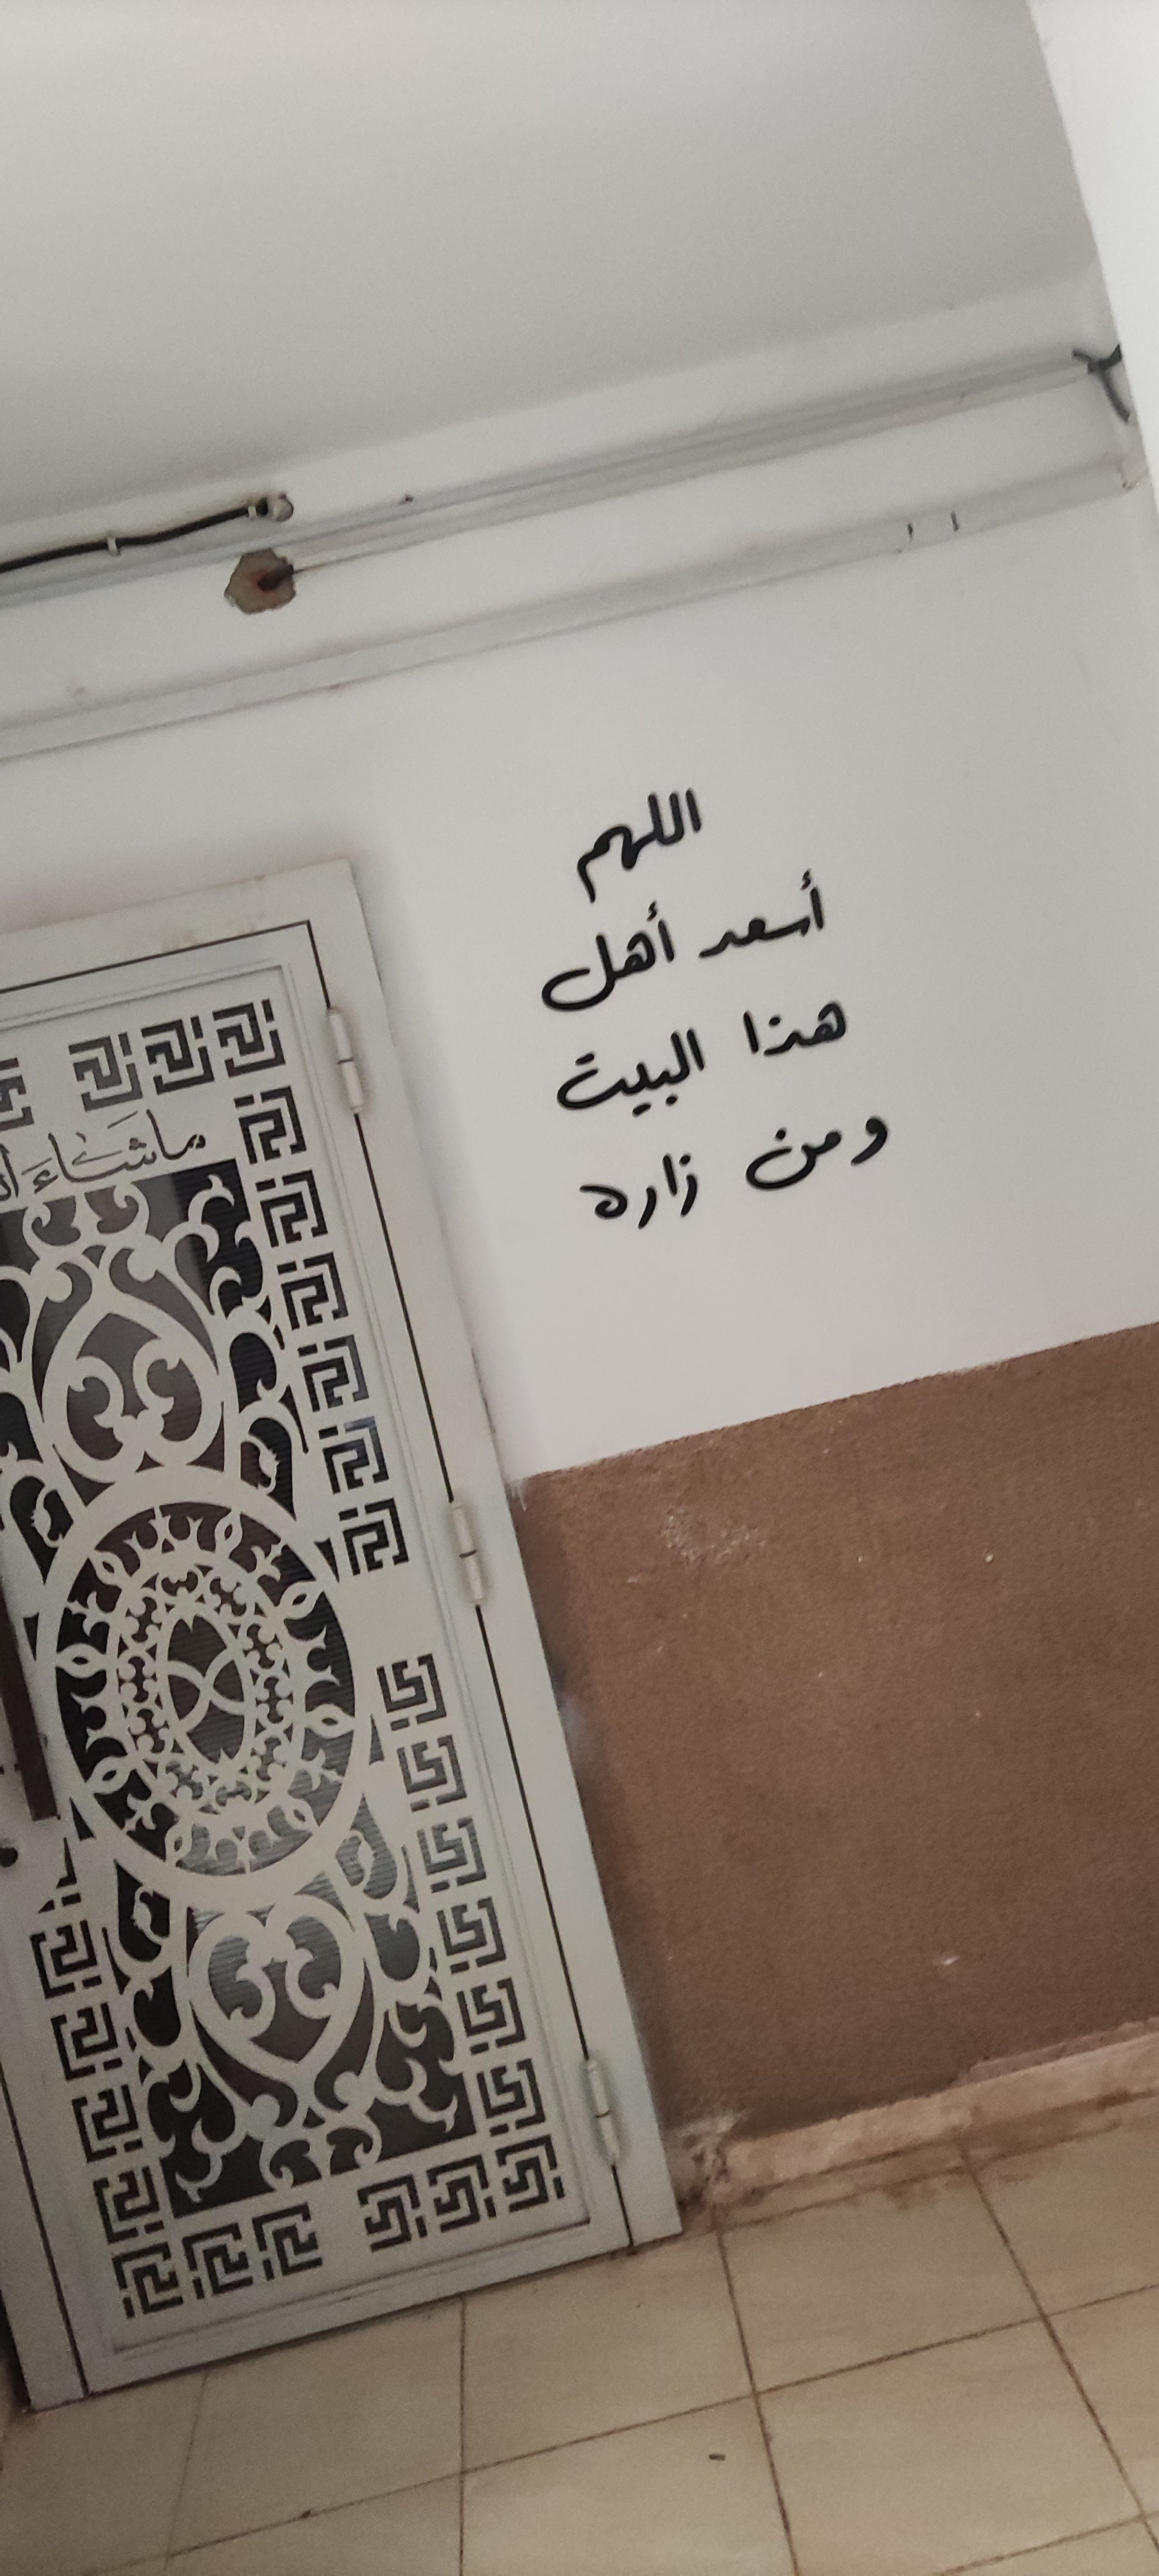 اللهم
أسعد أهل
هذا البيت
ومن زاره
ما شَاءَ